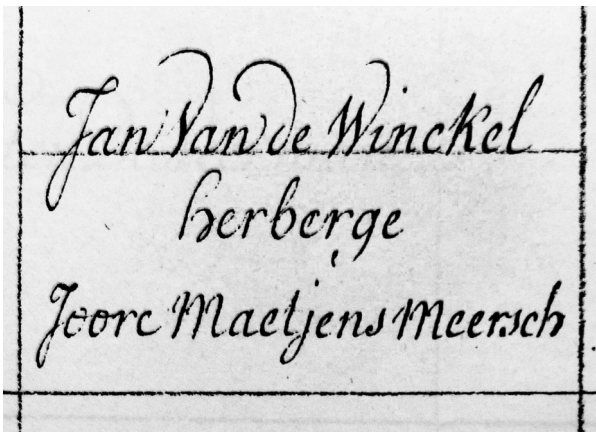 Jan Van de Winckel
herberge
Joorc Maetjens Meersch